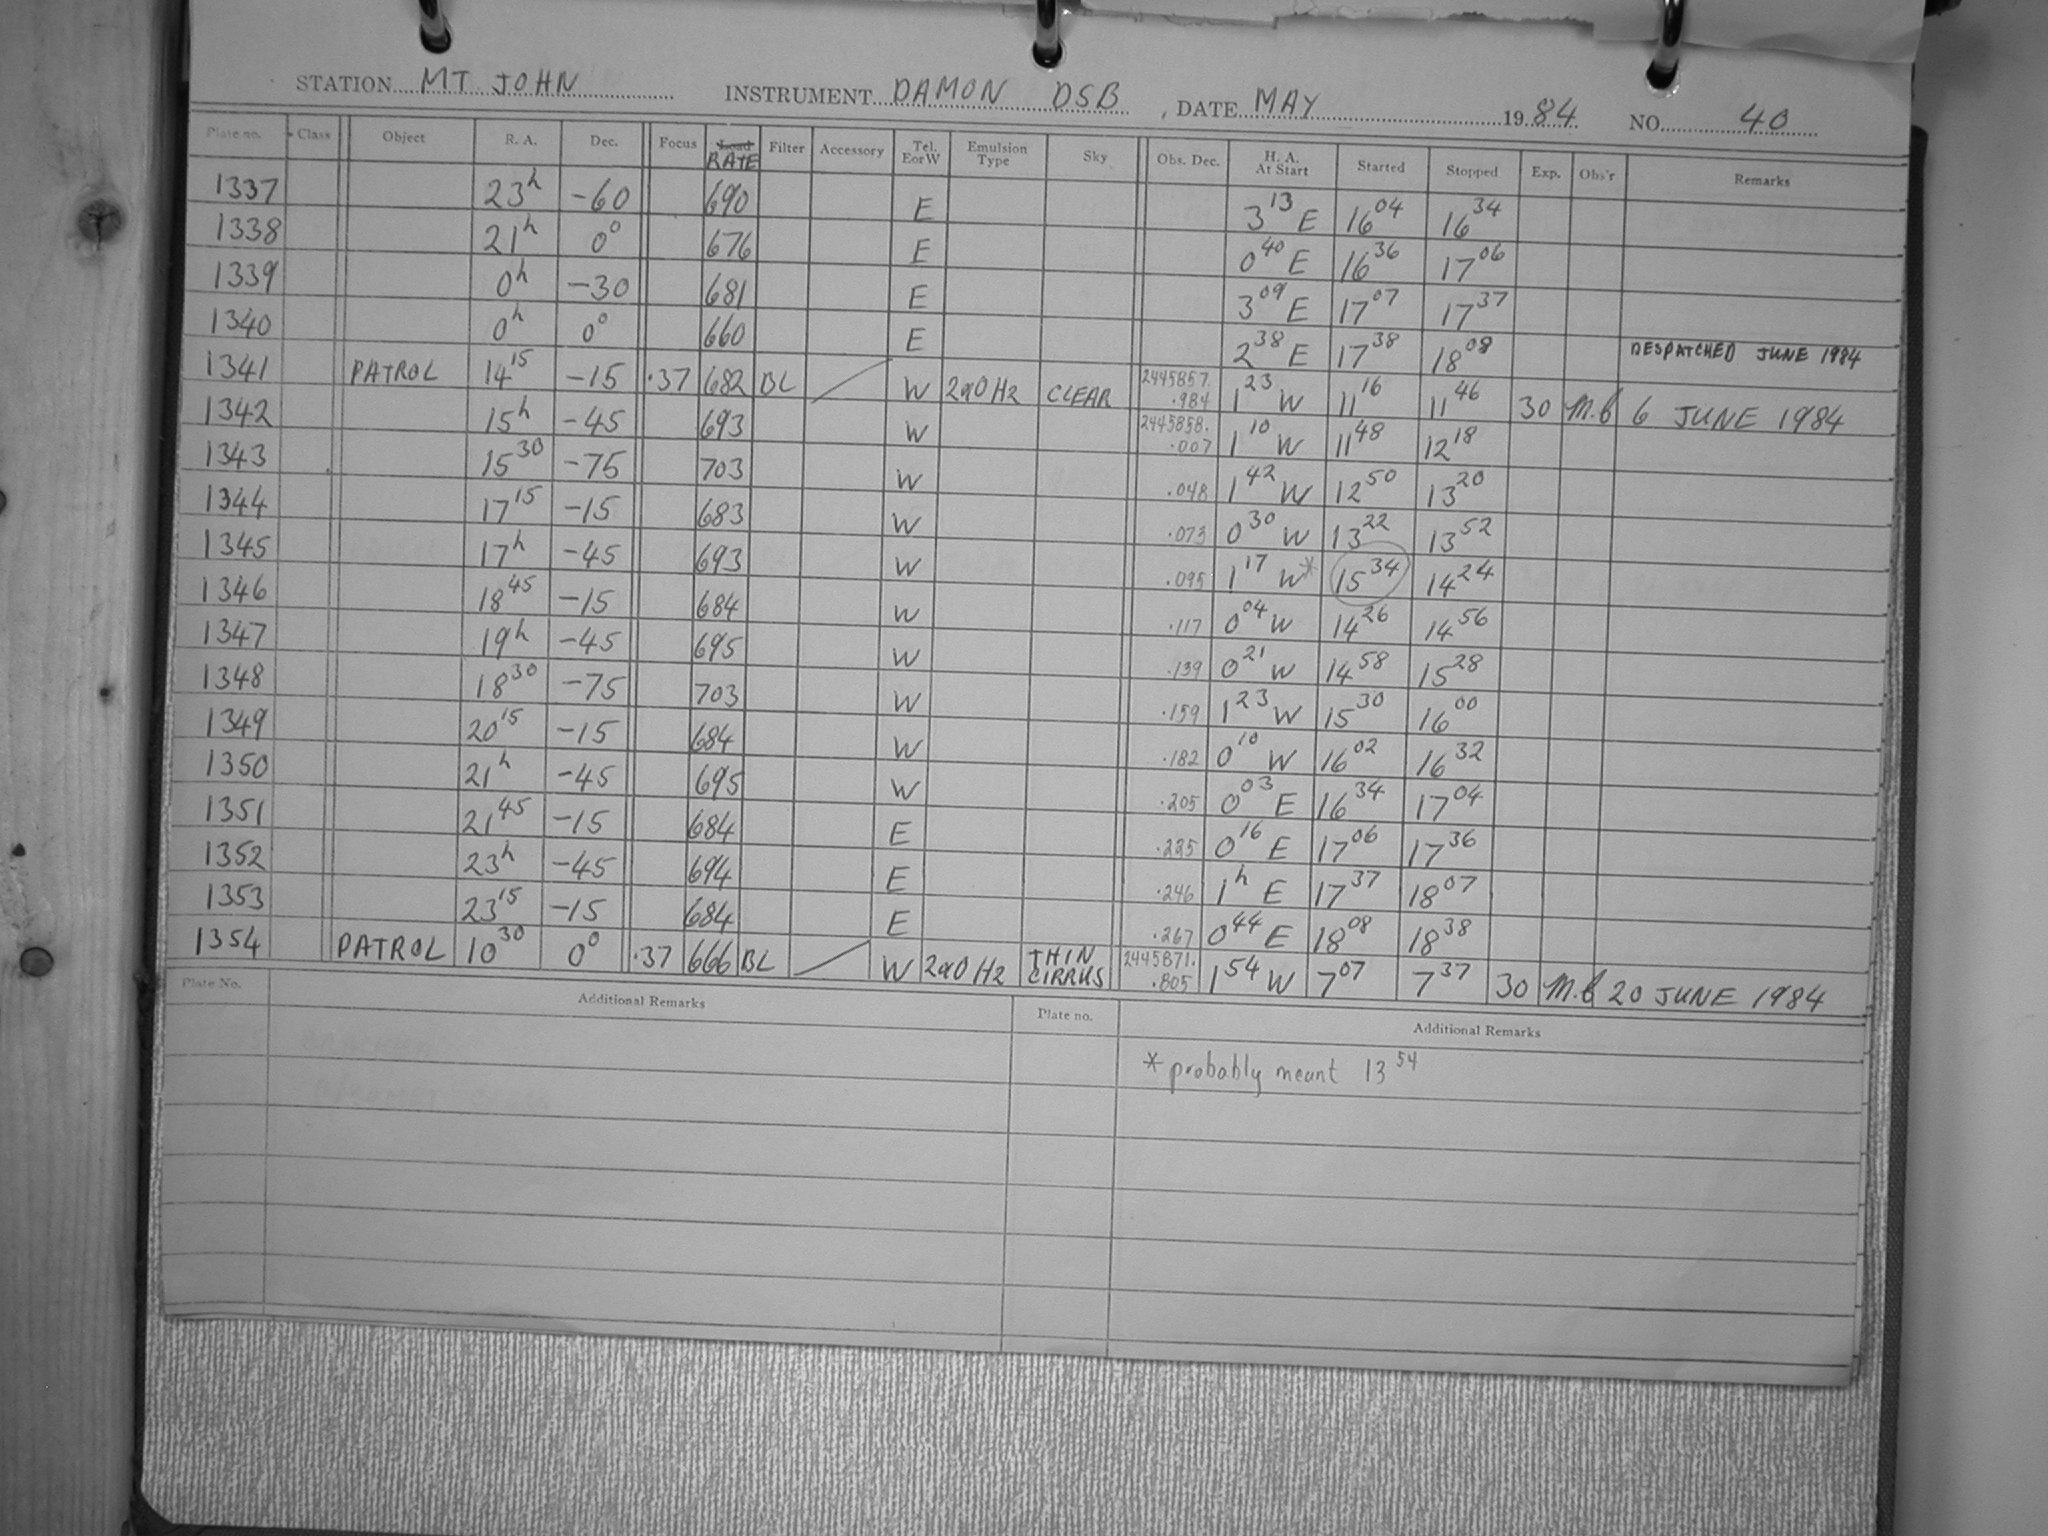 STATION MT JOHN INSTRUMENT DAMON DSB , DATE MAY 1984 NO. 40
Plate no. Class Object R. A. Dec. Focus Load RATE Filter Accessory Tel. E or W Emulsion Type Sky Obs. Dec. H. A. At Start Started Stopped Exp. Obs'r Remarks
1337 23h -60 690 E 3 13 E 16 04 16 34
1338 21h 0° 676 E 0 40 E 16 36 17 06
1339 0h -30 681 E 3 09 E 17 07 17 37
1340 0h 0° 660 E 2 38 E 17 38 18 08 DESPATCHED JUNE 1984
1341 PATROL 14 15 -15 .37 682 BL W 2a0 H2 CLEAR 2445857. .984 1 23 W 11 16 11 46 30 M.B 6 JUNE 1984
1342 15h -45 693 W 2445858. .007 1 10 W 11 48 12 18
1343 15 30 -75 703 W .048 1 42 W 12 50 13 20
1344 17 15 -15 683 W .073 0 30 W 13 22 13 52
1345 17h -45 693 W .095 1 17 W * 15 34 14 24
1346 18 45 -15 684 W .117 0 04 W 14 26 14 56
1347 19h -45 695 W .139 0 21 W 14 58 15 28
1348 18 30 -75 703 W .159 1 23 W 15 30 16 00
1349 20 15 -15 684 W .182 0 10 W 16 02 16 32
1350 21h -45 695 W .205 0 03 E 16 34 17 04
1351 21 45 -15 684 E .225 0 16 E 17 06 17 36
1352 23h -45 694 E .246 1h E 17 37 18 07
1353 23 15 -15 684 E .267 0 44 E 18 08 18 38
1354 PATROL 10 30 0° .37 666 BL W 2a0 H2 THIN CIRRUS 2445871. .805 1 54 W 7 07 7 37 30 M.B 20 JUNE 1984
Plate No. Additional Remarks Plate no. Additional Remarks
* probably meant 13 54